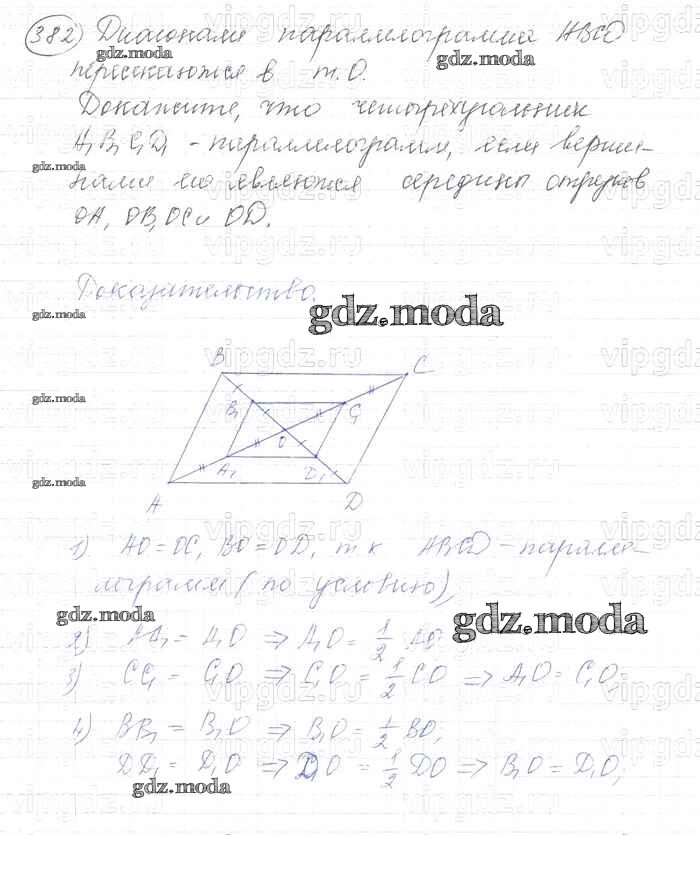 382) Диагонали параллелограмма ABCD
пересекаются в т. О.
Докажите, что четырехугольник
A₁B₁C₁D₁ - параллелограмм, если верши-
нами его являются середины отрезков
OA, OB, OC и OD.
Доказательство.
gdz.moda
B C
B₁ C₁
O
A₁ D₁
A D
1) AO = OC, BO = OD, т.к ABCD - паралле-
лограмм (по условию),
gdz.moda
2) AA₁ = A₁O ⇒ A₁O = 1/2 AO
3) CC₁ = C₁O ⇒ C₁O = 1/2 CO ⇒ A₁O = C₁O,
4) BB₁ = B₁O ⇒ B₁O = 1/2 BO,
DD₁ = D₁O ⇒ D₁O = 1/2 DO ⇒ B₁O = D₁O,
gdz.moda
vipgdz.ru